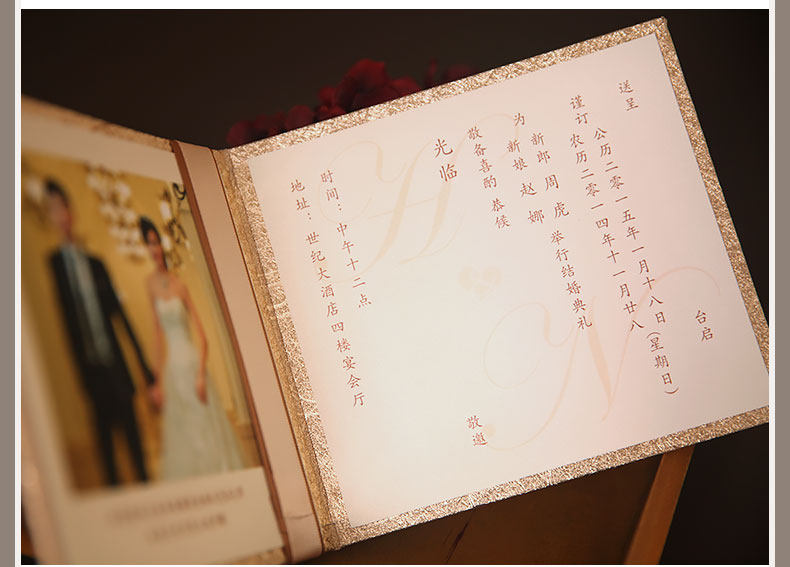 送呈 台启
谨订 公历二零一五年一月十八日(星期日)
农历二零一四年十一月廿八
为 新郎 周虎 举行结婚典礼
新娘 赵娜
敬备喜酌 恭候
光临
敬邀
时间：中午十二点
地址：世纪大酒店四楼宴会厅
H
N